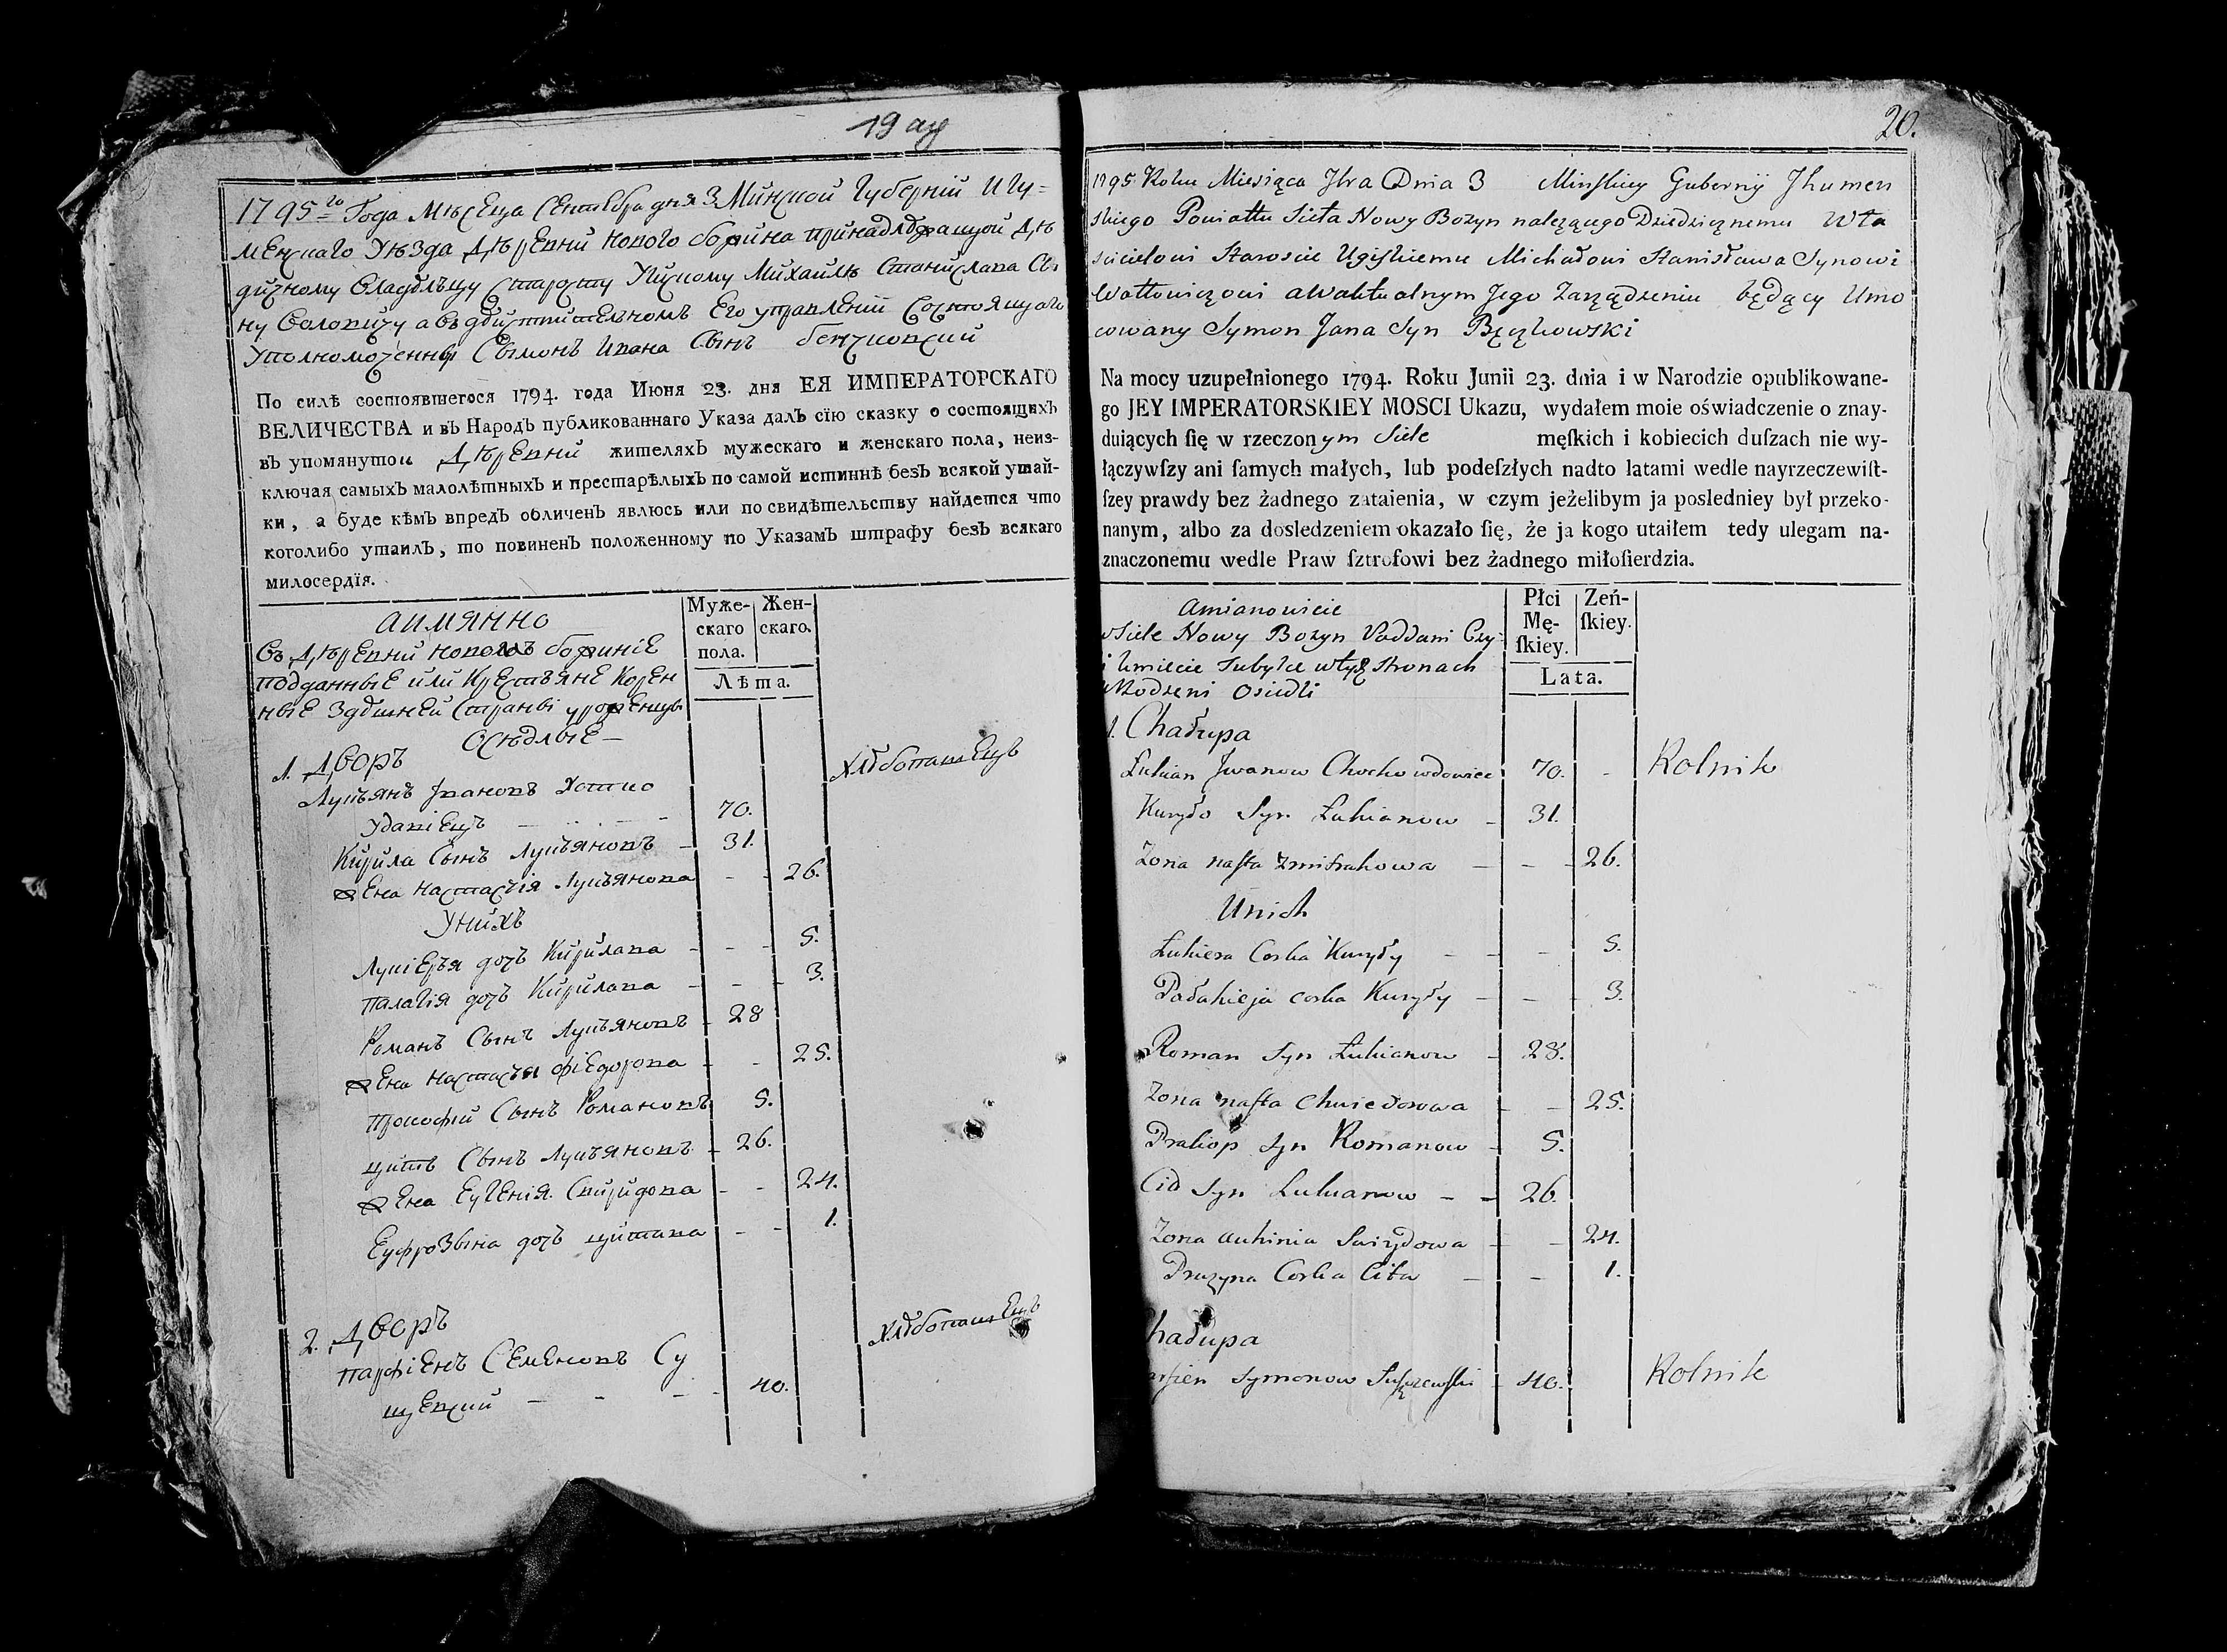 19 ау
1795го Года Мѣсеца Сентебра дня 3 Минской Губерніи Игу=
менскаго Уѣзда Дѣревни Нового Божина принадлѣжащой Дѣ
дичному Владѣльцу Старосту Угискому Михаилѣ Станислава Сы
ну Воловичу а въ дѣйствительномъ Его управленіи Состоящаго
Уполномоченны Сымонъ Ивана Сынъ Бенчковский
По силѣ состоявшегося 1794. года Июня 23. дня ЕЯ ИМПЕРАТОРСКАГО
ВЕЛИЧЕСТВА и въ Народъ публикованнаго Указа далъ сїю сказку о состоящихъ
въ упомянутои Дѣревни жителяхъ мужескаго и женскаго пола, неиз-
ключая самыхъ малолѣтныхъ и престарѣлыхъ по самой истиннѣ безъ всякой утай-
ки, а буде кѣмъ впредъ обличенъ явлюсь или по свидѣтельству найдется что
коголибо утаилъ, то повиненъ положенному по Указамъ штрафу безъ всякаго
милосердїя.
аимянно
Въ Дѣревни Новомъ Божиніе
подданные или Крестъяне Корен
ные Здѣшней Страны уроженцы
Осѣдлые —
Муже- Жен-
скаго скаго.
пола.
Лѣта.
1. Дворъ Хлѣбопашецъ
Лукъянъ Івановъ Хотько
удавіецъ 70.
Кирила Сынъ Лукъяновъ 31.
Жена Настасъія Лукъянова 26.
У нихъ
Лукіеръя дочь Кирилава 5.
Палагія дочь Кирилава 3.
Романъ Сынъ Лукъяновъ 28
Жена Настасъя Фіедорова 25.
Прокофий Сынъ Романовъ 5.
Цитъ Сынъ Лукъяновъ 26.
Жена Еугенія Свиридова 24.
Еуфрозына дочь Цитава 1.
2. Дворъ Хлѣбопашецъ
Парфіенъ Семеновъ Су
щевский 40.
20.
1795 Roku Miesiąca 7bra Dnia 3 Minskiey Gubernÿ Jhumen
skiego Powiattu Sieła Nowy Bozyn nalezącego Dziedzicznemu Wła
scicielowi Staroscie Ugiskiemu Michałowi Stanisława Synowi
Wołłowiczowi a w aktualnym Jego Zarządzeniu będący Umo
cowany Symon Jana Syn Bęczkowski
Na mocy uzupełnionego 1794. Roku Junii 23. dnia i w Narodzie opublikowane-
go JEY IMPERATORSKIEY MOSCI Ukazu, wydałem moie oświadczenie o znay-
duiących ſię w rzeczonym Siele męſkich i kobiecich duſzach nie wy-
łączywſzy ani ſamych małych, lub podeſzłych nadto latami wedle nayrzeczewiſt-
ſzey prawdy bez żadnego zataienia, w czym jeżelibym ja posledniey był przeko-
nanym, albo za dosledzeniem okazało ſię, że ja kogo utaiłem tedy ulegam na-
znaczonemu wedle Praw ſztrofowi bez żadnego miłoſierdzia.
amianowicie
w Siele Nowy Bozyn Poddani Czy
i kmiecie Tubylce w tych stronach
Rodzeni Osiedli
Płci Zeń-
Mę- ſkiey.
ſkiey.
Lata.
1. Chałupa
Łukian Jwanow Chocko wdowiec 70. Rolnik
Kuryło Syn Łukianow 31.
Zona nasta Zmitrakowa 26.
U nich
Łukiera Corka Kuryły 5.
Pałahieja corka Kuryły 3.
Roman Syn Łukianow 28.
Zona nasta Chwiedorowa 25.
Prakop Syn Romanow 5.
Cid Syn Lukianow 26.
Zona Auhinia Swirydowa 24.
Pruzyna Corka Cita 1.
Chałupa
Parfien Symonow Suszczewski 40. Rolnik